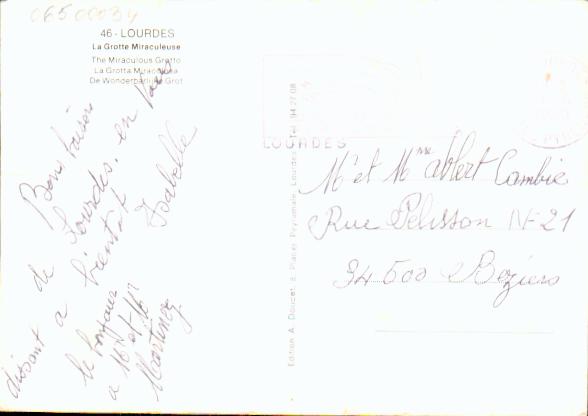 06500034
46 - LOURDES
La Grotte Miraculeuse
The Miraculous Grotto
La Grotta Miracolosa
De Wonderbarlijke Grot
Bons baisers
de Lourdes. en vous
disant a bientôt Isabelle
le bonjour
a Mr et Mr
Martinez
LOURDES
Edition A. Doucet, 8, Place Peyramale, Lourdes - Tél. 94.27.08
Mr et Mme Albert Cambie
Rue Pelisson N° 21
34500 Beziers